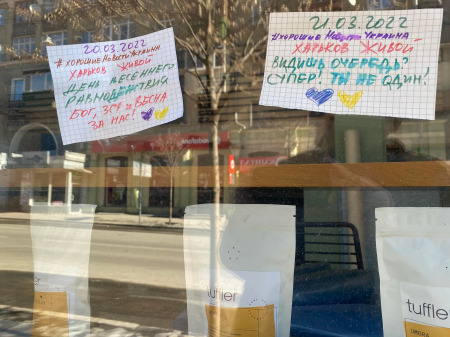 20.03.2022
#хорошиеНовостиУкраина
ХАРЬКОВ ЖИВОЙ
ДЕНЬ ВЕСЕННЕГО
РАВНОДЕНСТВИЯ
БОГ, ЗСУ и ВЕСНА
ЗА НАС!
21.03.2022
#хорошиеНовостиУкраина
ХАРЬКОВ ЖИВОЙ
ВИДИШЬ ОЧЕРЕДЬ?
СУПЕР! ТЫ НЕ ОДИН!
tuffler
tuffler
tuffler